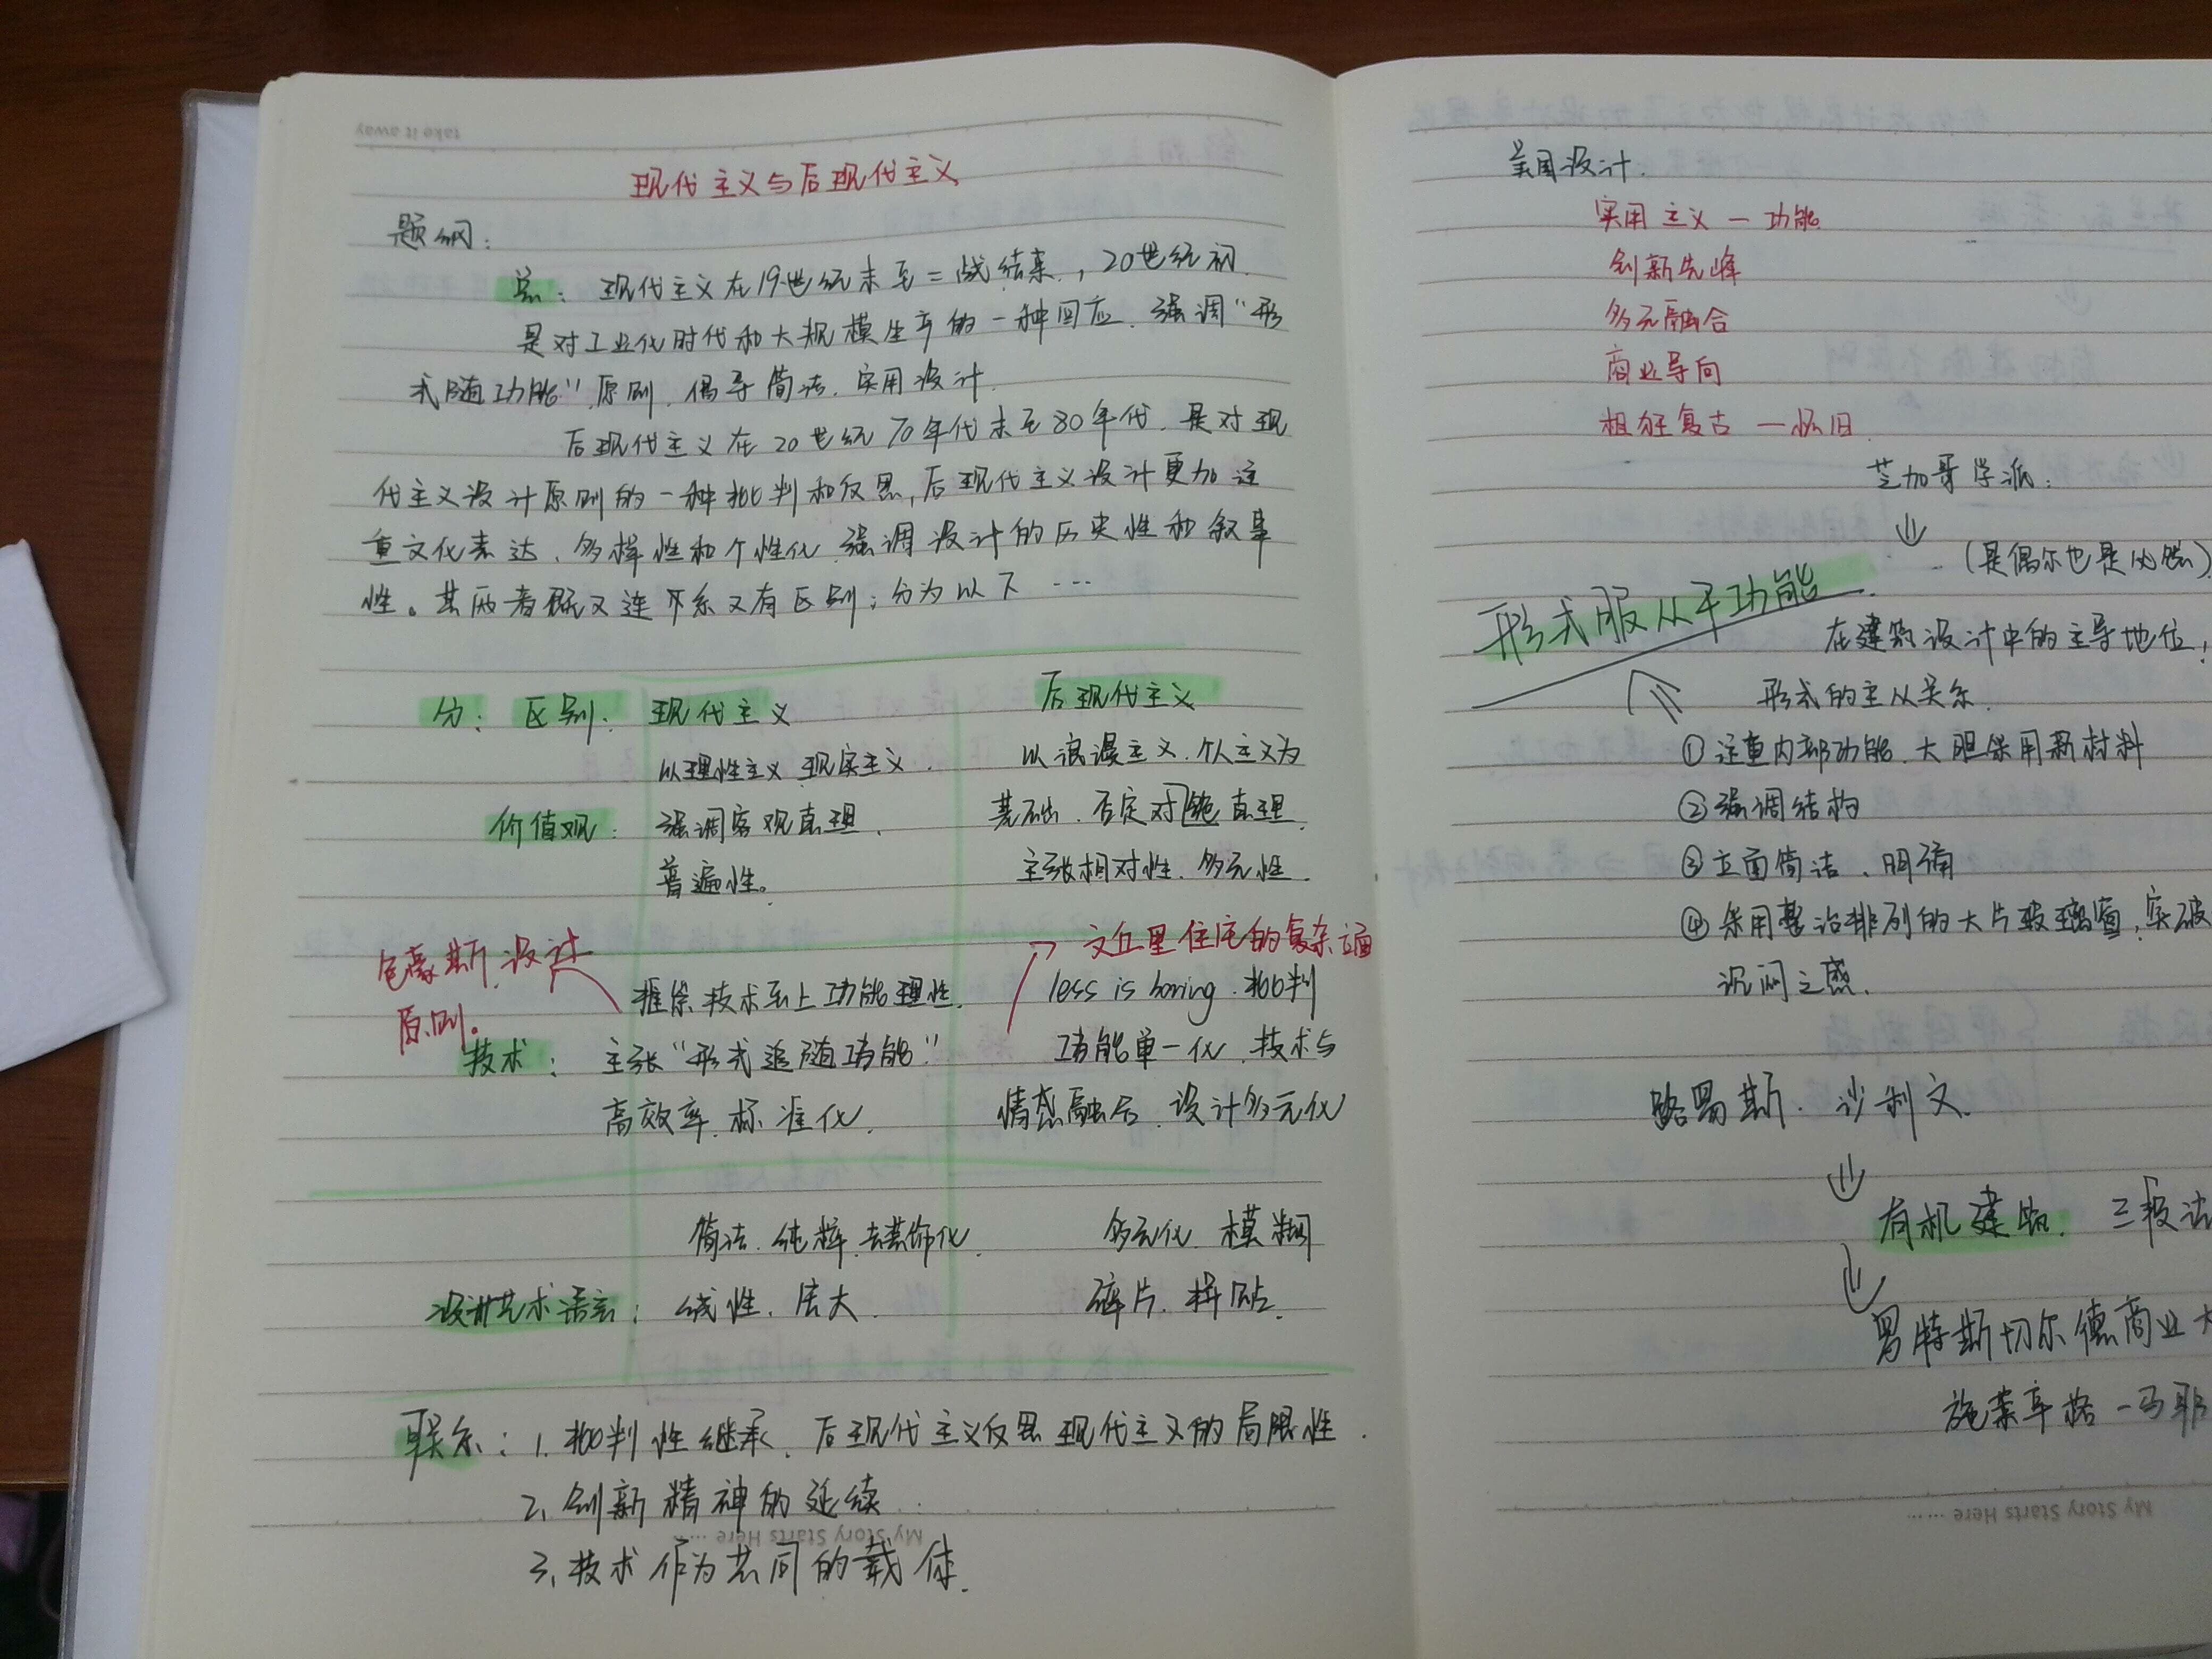 take it away
现代主义与后现代主义
题纲：
总：现代主义在19世纪末至二战结束，20世纪初
是对工业化时代和大规模生产的一种回应，强调“形
式随功能”原则，倡导简洁、实用设计.
后现代主义在20世纪70年代末至80年代，是对现
代主义设计原则的一种批判和反思，后现代主义设计更加注
重文化表达、多样性和个性化，强调设计的历史性和叙事
性。其两者既又连系又有区别；分为以下…
分：区别：现代主义 后现代主义
以理性主义、现实主义. 以浪漫主义、个人主义为
价值观：强调客观真理、 基础、否定对绝真理
普遍性。 主张相对性、多元性.
包豪斯设计 文丘里住宅的复杂立面
原则。 推崇技术至上功能理性. less is boring. 批判
技术：主张“形式追随功能” 功能单一化，技术与
高效率、标准化. 情感融合、设计多元化
简洁、纯粹、去装饰化. 多元化、模糊
设计艺术语言：线性、宏大. 碎片、拼贴.
联系：1、批判性继承、后现代主义反思现代主义的局限性.
2、创新精神的延续
My Story Starts Here ......
3、技术作为共同的载体.
美国设计.
实用主义—功能
创新先峰
多元融合
商业导向
粗狂复古—怀旧
芝加哥学派：
(是偶尔也是必然)
形式服从于功能
在建筑设计中的主导地位，
形式的主从关系.
①注重内部功能、大胆采用新材料
②强调结构
③立面简洁、明确
④采用整洁排列的大片玻璃窗，突破
沉闷之感.
路易斯·沙利文.
有机建筑. 三段法
罗特斯切尔德商业大
施莱辛格—马耶
My Story Starts Here ......